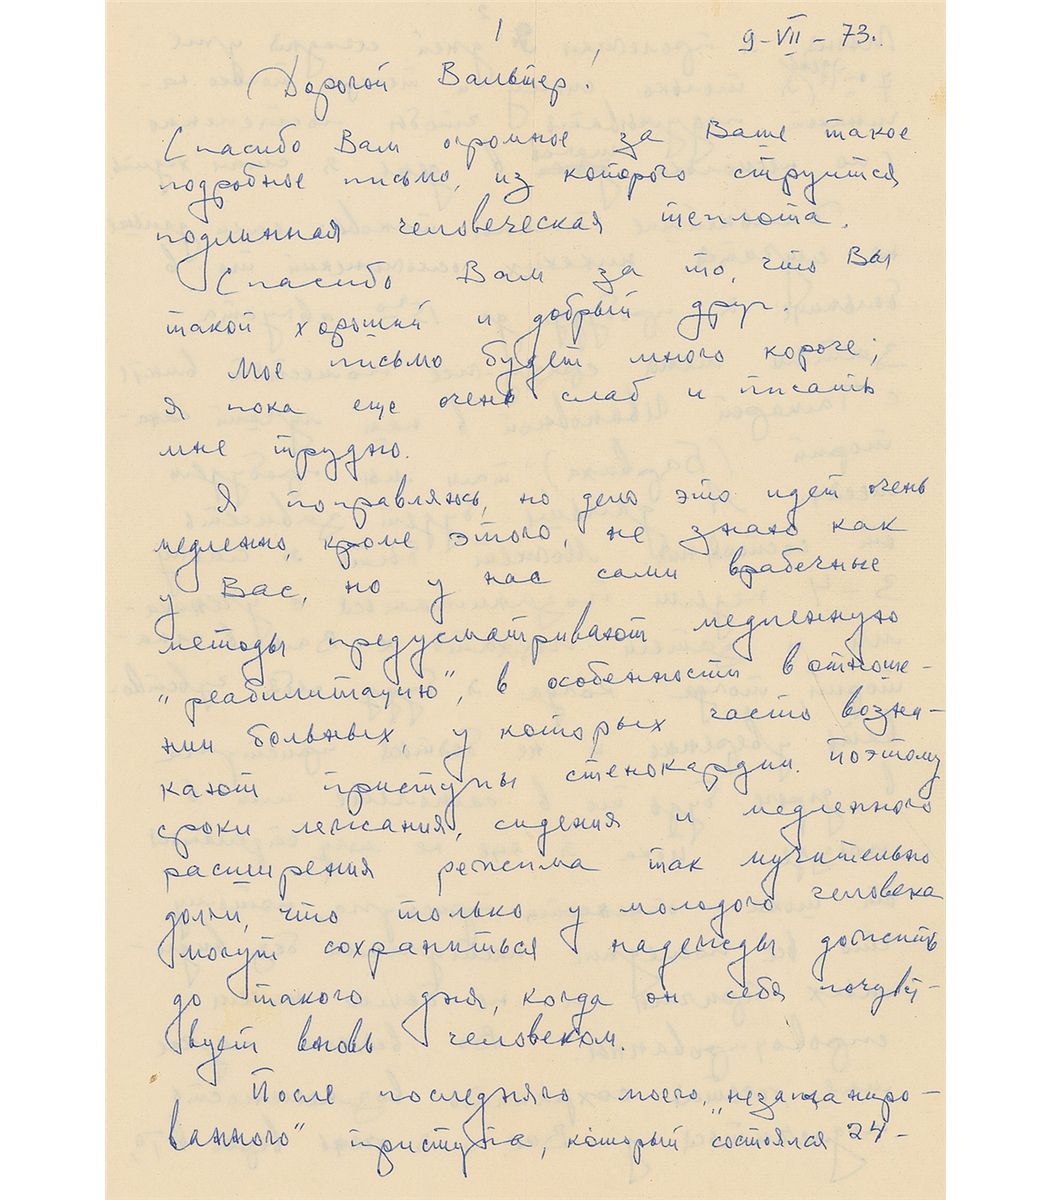 1
9-VII-73.
Дорогой Вальтер!
Спасибо Вам огромное за Ваше такое
подробное письмо, из которого струится
подлинная человеческая теплота.
Спасибо Вам за то, что Вы
такой хороший и добрый друг.
Мое письмо будет много короче;
я пока еще очень слаб и писать
мне трудно.
Я поправляюсь, но дело это идет очень
медленно, кроме этого, не знаю как
у Вас, но у нас сами врабечные
методы предусматривают медленную
„реабилитацию", в особенности в отноше-
нии больных, у которых часто возни-
кают приступы стенокардии. Поэтому
сроки лежания, сидения и медленного
расширения режима так мучительно
долги, что только у молодого человека
могут сохраниться надежды дожить
до такого дня, когда он себя почувст-
вует вновь человеком.
После последнего моего „незапланиро-
ванного" приступа, который состоялся 24-